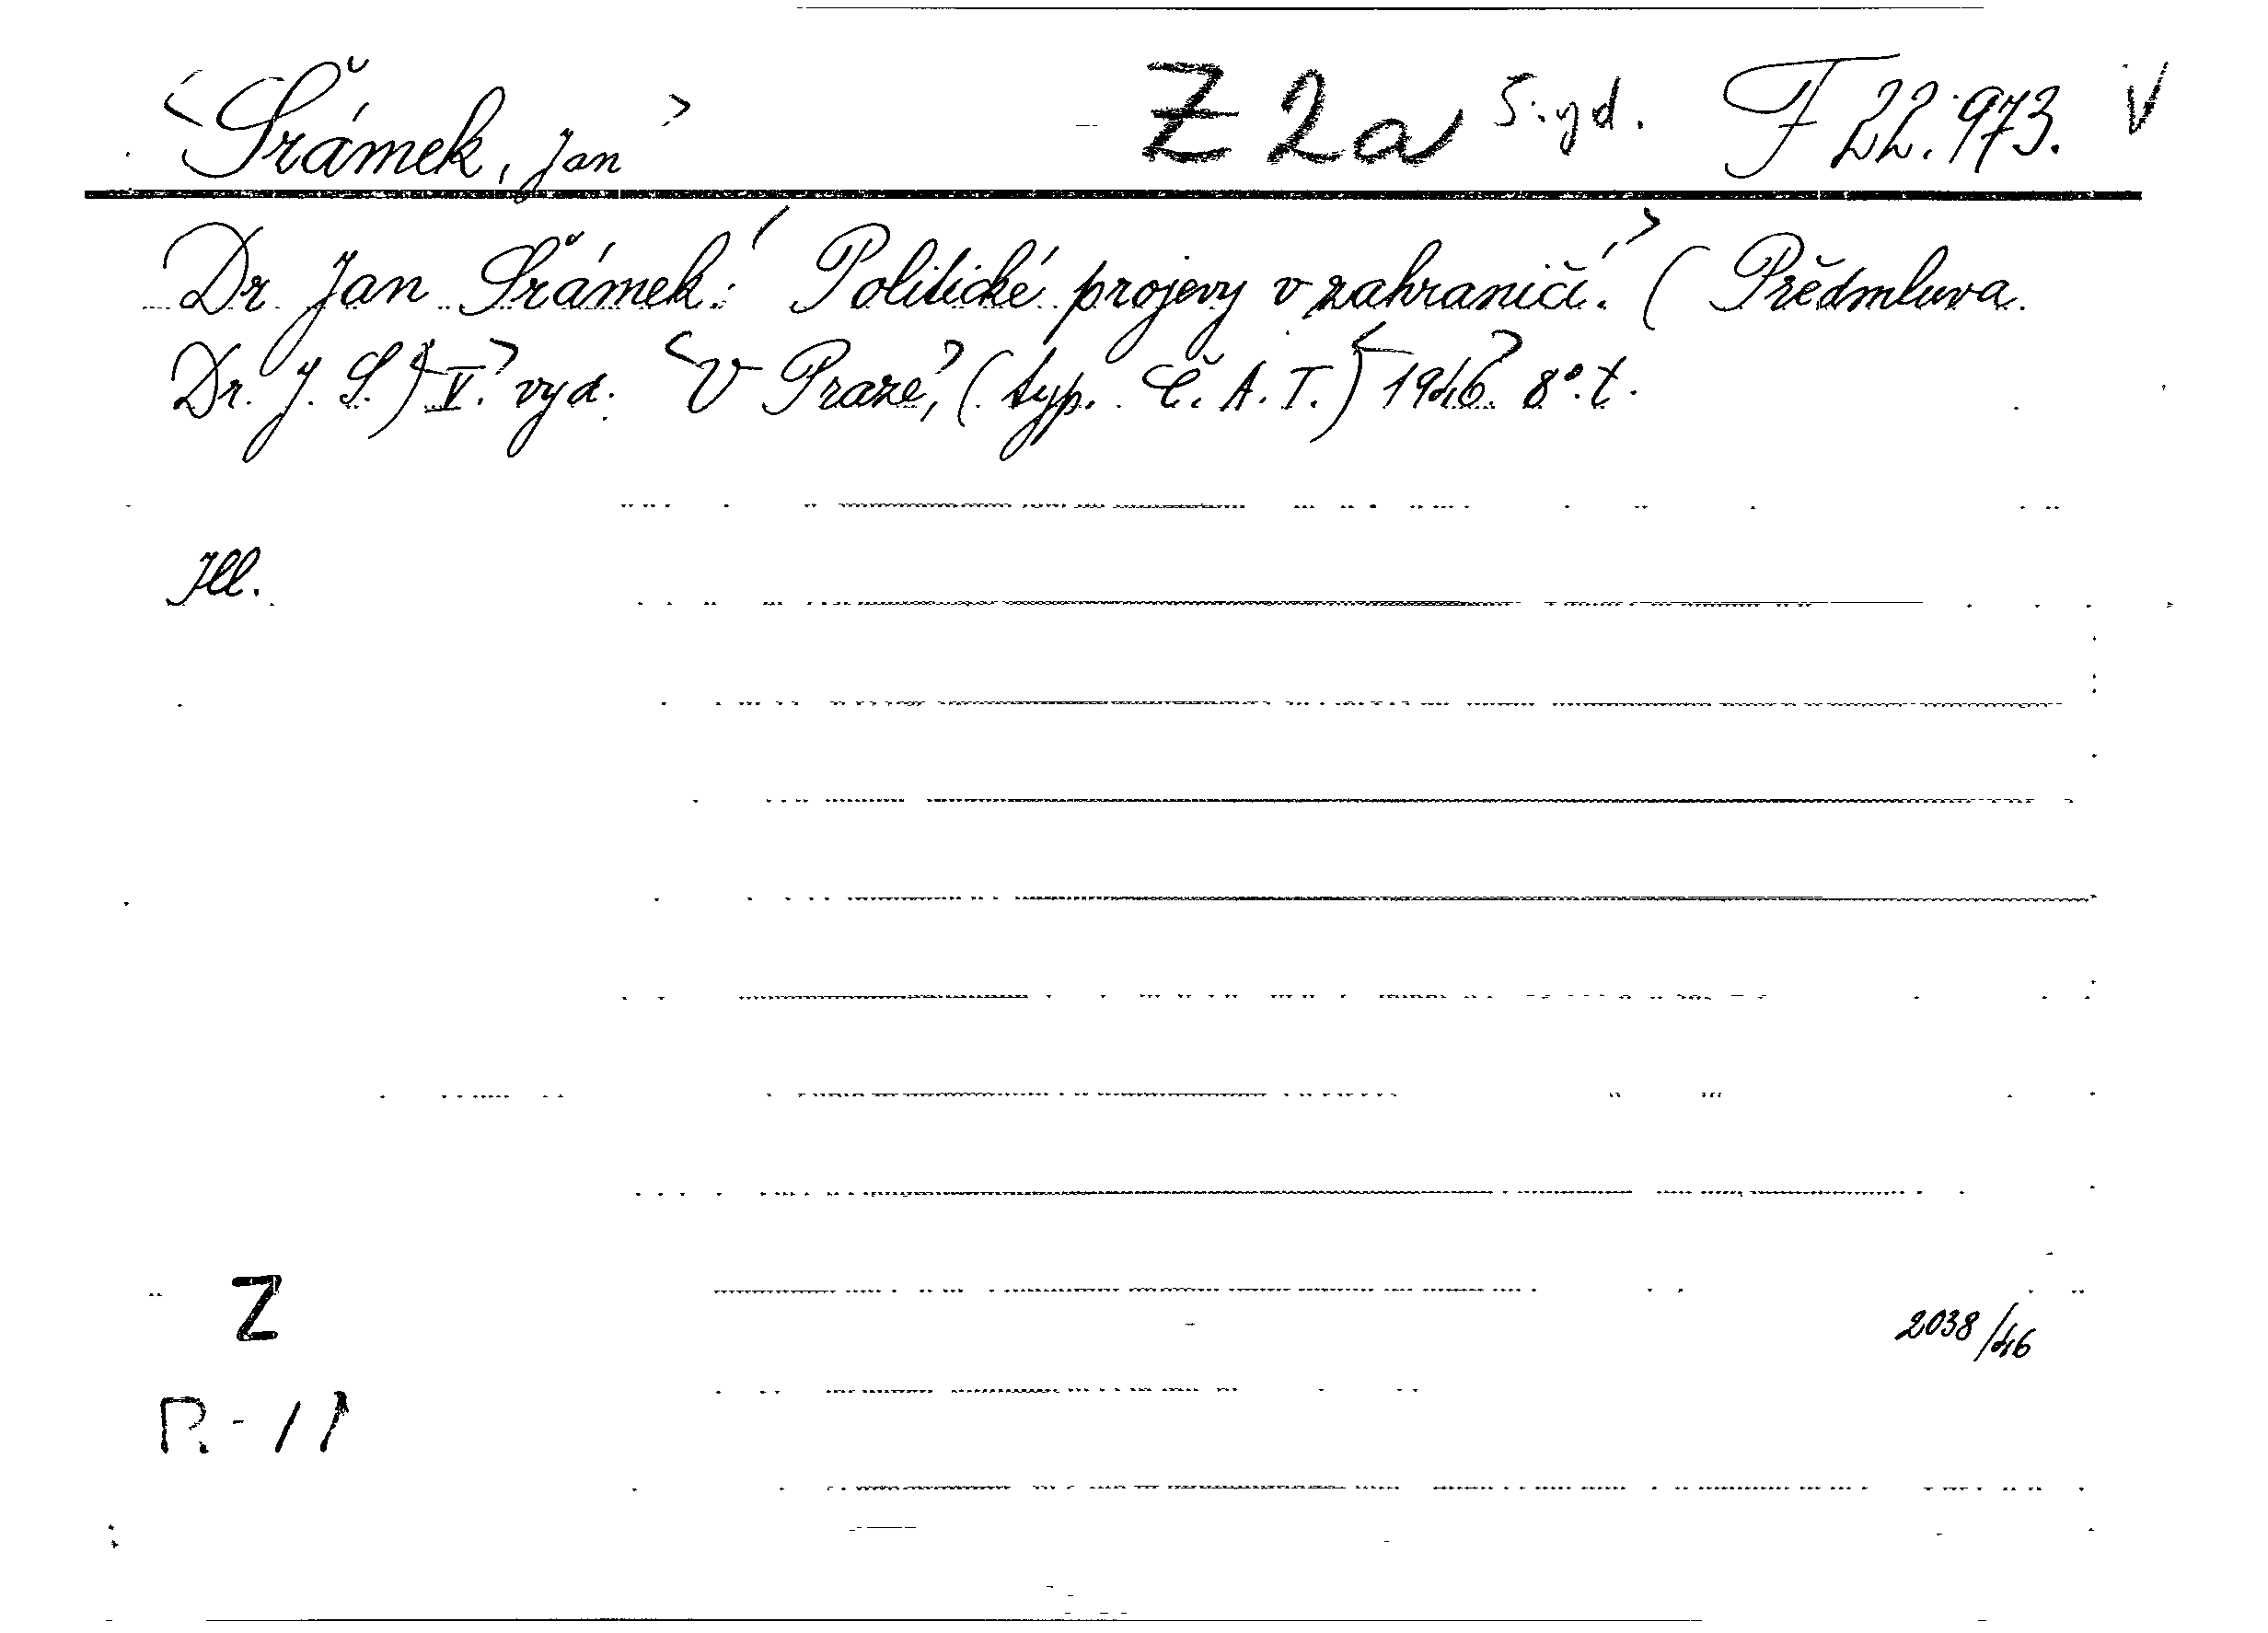 <Šrámek, Jan> Z 2a 5.yd. F 22.973. V
Dr. Jan Šrámek: <Politické projevy v zahraničí.> (Předmluva
Dr. J. S.) <V.> vyd. <V Praze,> (typ. Č. A. T.) <1946.> 8°. t.
Ill.
Z
2038/46
R-11